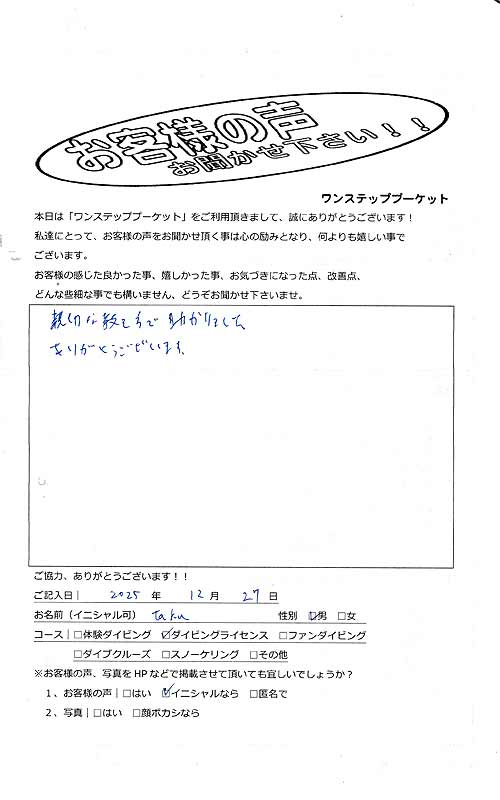 お客様の声
お聞かせ下さい！！
ワンステッププーケット
本日は「ワンステッププーケット」をご利用頂きまして、誠にありがとうございます！
私達にとって、お客様の声をお聞かせ頂く事は心の励みとなり、何よりも嬉しい事で
ございます。
お客様の感じた良かった事、嬉しかった事、お気づきになった点、改善点、
どんな些細な事でも構いません、どうぞお聞かせ下さいませ。
親切な教え方で助かりました
ありがとうございます
ご協力、ありがとうございます！！
ご記入日｜ 2025 年 12 月 27 日
お名前（イニシャル可） Taku 性別 ☑男 □女
コース｜□体験ダイビング ☑ダイビングライセンス □ファンダイビング
□ダイブクルーズ □スノーケリング □その他
※お客様の声、写真をHPなどで掲載させて頂いても宜しいでしょうか？
１、お客様の声｜□はい ☑イニシャルなら □匿名で
２、写真｜□はい □顔ボカシなら